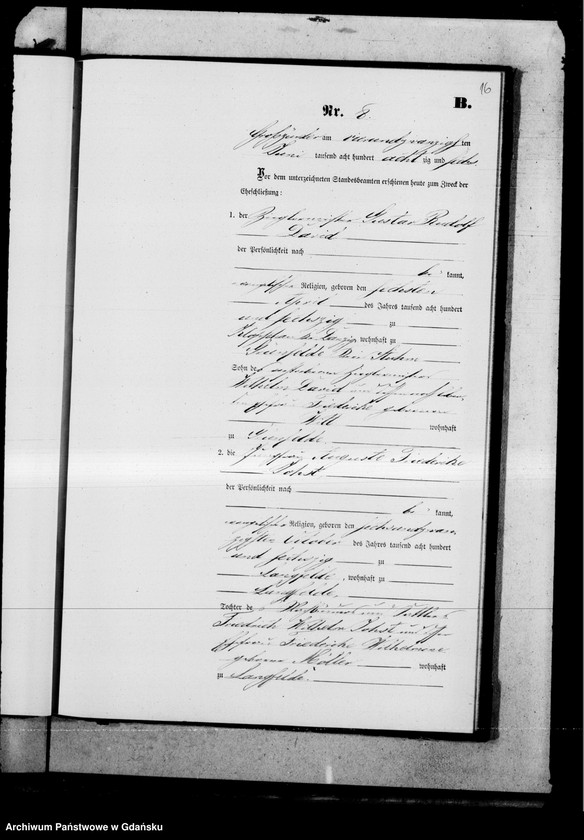 16
B.
Nr. 8.
am vierundzwanzigsten
Juni tausend acht hundert achtzig und sechs
Vor dem unterzeichneten Standesbeamten erschienen heute zum Zweck der
Eheschließung:
1. der Zieglermeister Gustav Rudolf
David
der Persönlichkeit nach
be kannt,
evangelischer Religion, geboren den sechsten
April des Jahres tausend acht hundert
und sechszig zu
bei Danzig, wohnhaft zu
Sohn des verstorbenen Zieglermeister
Wilhelm David
Friederike geborene
Will wohnhaft
zu
2. die Jungfrau Auguste Friederike
Jobst
der Persönlichkeit nach
be kannt,
evangelischer Religion, geboren den sechsundzwan-
zigsten October des Jahres tausend acht hundert
und sechszig zu
Langfelde, wohnhaft zu
Langfelde,
Tochter des
Friedrich Wilhelm Jobst und
Ehefrau Friederike Wilhelmine
geborene Möller wohnhaft
zu Langfelde.
Archiwum Państwowe w Gdańsku